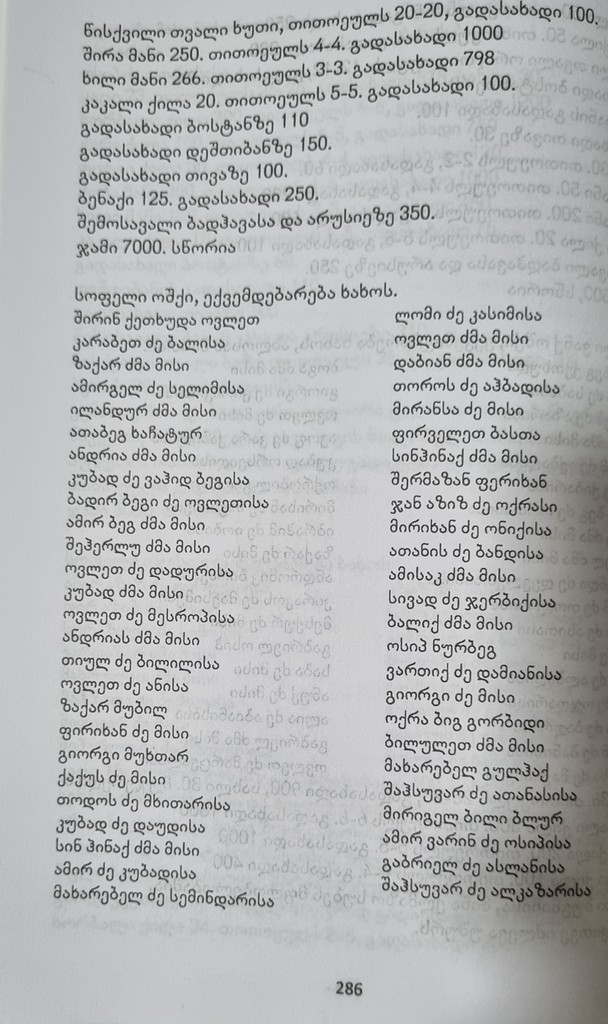 წისქვილი თვალი ხუთი, თითოეულს 20-20, გადასახადი 100.
შირა მანი 250. თითოეულს 4-4. გადასახადი 1000
ხილი მანი 266. თითოეულს 3-3. გადასახადი 798
კაკალი ქილა 20. თითოეულს 5-5. გადასახადი 100.
გადასახადი ბოსტანზე 110
გადასახადი დეშთიბანზე 150.
გადასახადი თივაზე 100.
ბენაქი 125. გადასახადი 250.
შემოსავალი ბადჰავასა და არუსიეზე 350.
ჯამი 7000. სწორია
სოფელი ოშქი, ექვემდებარება ხახოს.
შირინ ქეთხუდა ოვლეთ
კარაბეთ ძე ბალისა
ზაქარ ძმა მისი
ამირგელ ძე სელიმისა
ილანდურ ძმა მისი
ათაბეგ ხაჩატურ
ანდრია ძმა მისი
კუბად ძე ვაჰიდ ბეგისა
ბადირ ბეგი ძე ოვლეთისა
ამირ ბეგ ძმა მისი
შეჰერლუ ძმა მისი
ოვლეთ ძე დადურისა
კუბად ძმა მისი
ოვლეთ ძე მესროპისა
ანდრიას ძმა მისი
თიულ ძე ბილილისა
ოვლეთ ძე ანისა
ზაქარ მუბილ
ფირიხან ძე მისი
გიორგი მუხთარ
ქაქუს ძე მისი
თოდოს ძე მხითარისა
კუბად ძე დაუდისა
სინ ჰინაქ ძმა მისი
ამირ ძე კუბადისა
მახარებელ ძე სემინდარისა
ლომი ძე კასიმისა
ოვლეთ ძმა მისი
დაბიან ძმა მისი
თოროს ძე აჰბადისა
მირანსა ძე მისი
ფირველეთ ბასთა
სინჰინაქ ძმა მისი
შერმაზან ფერიხან
ჯან აზიზ ძე ოქრასი
მირიხან ძე ონიქისა
ათანის ძე ბანდისა
ამისაკ ძმა მისი
სივად ძე ჯერბიქისა
ბალიქ ძმა მისი
ოსიპ ნურბეგ
ვართიქ ძე დამიანისა
გიორგი ძე მისი
ოქრა ბიგ გორბიდი
ბილულეთ ძმა მისი
მახარებელ გულჰაქ
შაჰსუვარ ძე ათანასისა
მირიგელ ბილი ბლურ
ამირ ვარინ ძე ოსიპისა
გაბრიელ ძე ასლანისა
შაჰსუვარ ძე ალკაზარისა
286